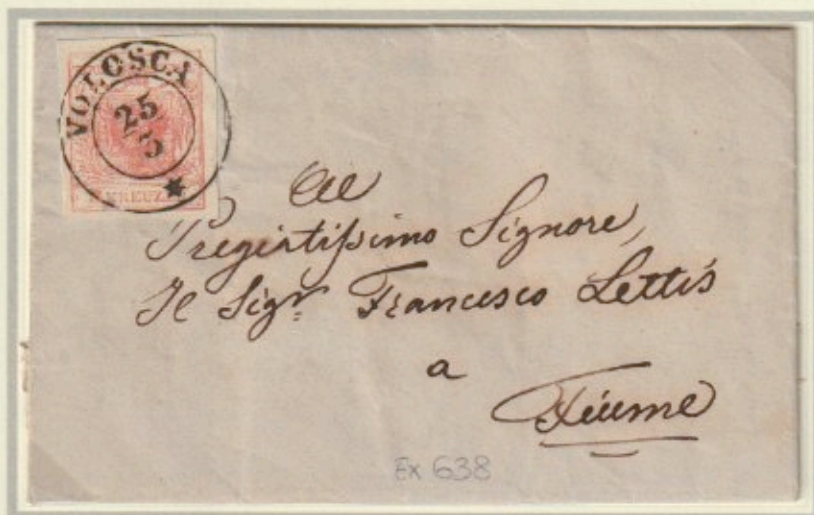 VOLOSCA
25
5
KREUZ
Al
Pregiatissimo Signore,
Il Sigr Francesco Lettis
a
Fiume
Ex 638